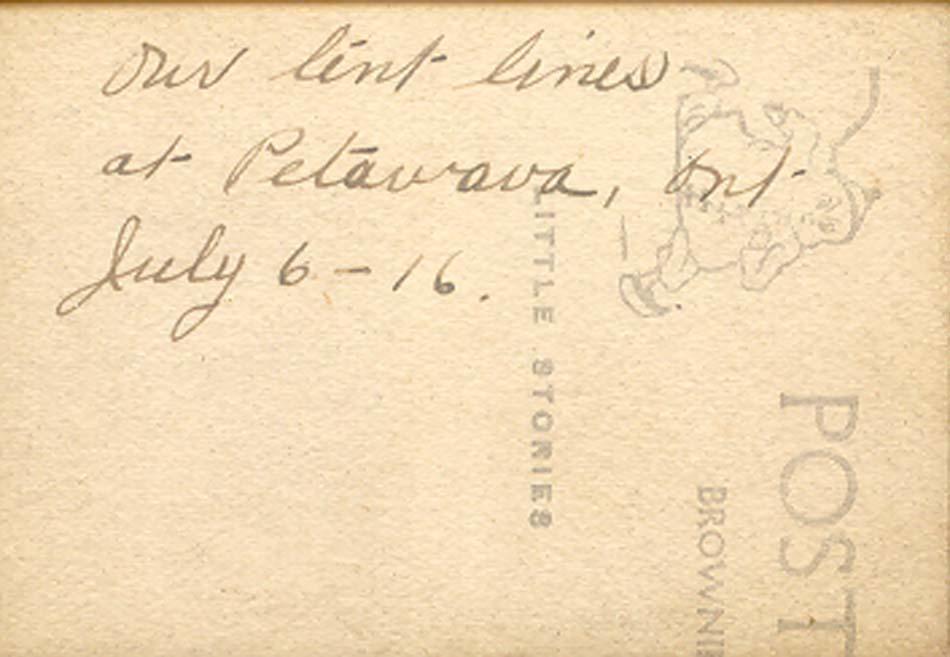 Our tent lines
at Petawawa, Ont
July 6 - 16.
LITTLE STORIES
POST
BROWNI